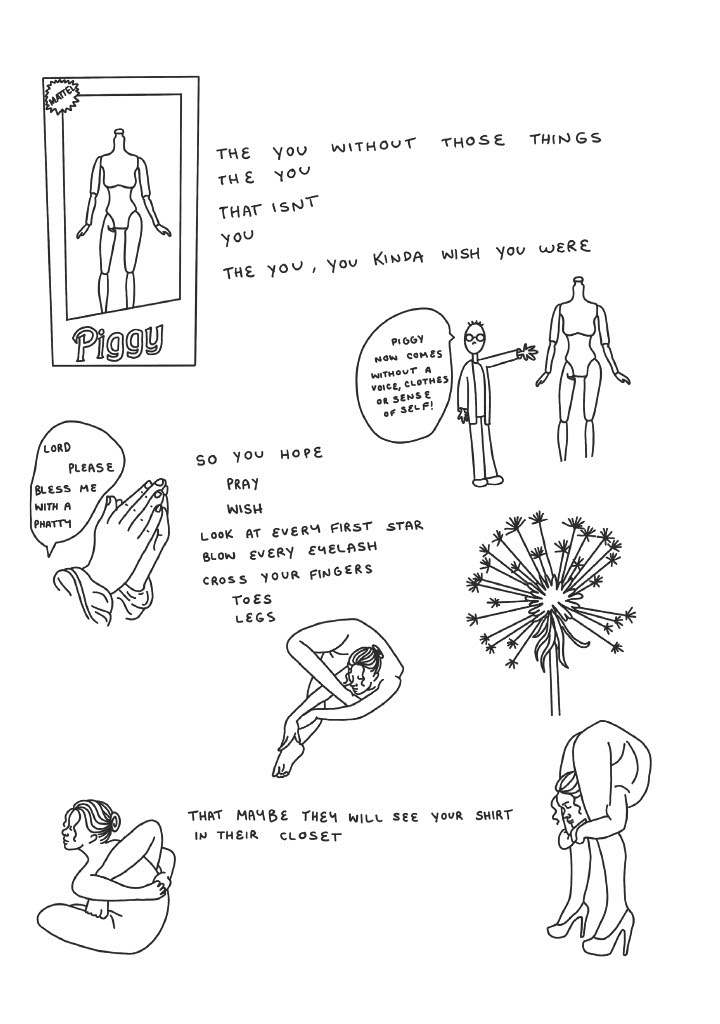 MATTEL
Piggy
THE YOU WITHOUT THOSE THINGS
THE YOU
THAT ISNT
YOU
THE YOU, YOU KINDA WISH YOU WERE
PIGGY
NOW COMES
WITHOUT A
VOICE, CLOTHES
OR SENSE
OF SELF!
LORD
PLEASE
BLESS ME
WITH A
PHATTY
SO YOU HOPE
PRAY
WISH
LOOK AT EVERY FIRST STAR
BLOW EVERY EYELASH
CROSS YOUR FINGERS
TOES
LEGS
THAT MAYBE THEY WILL SEE YOUR SHIRT
IN THEIR CLOSET